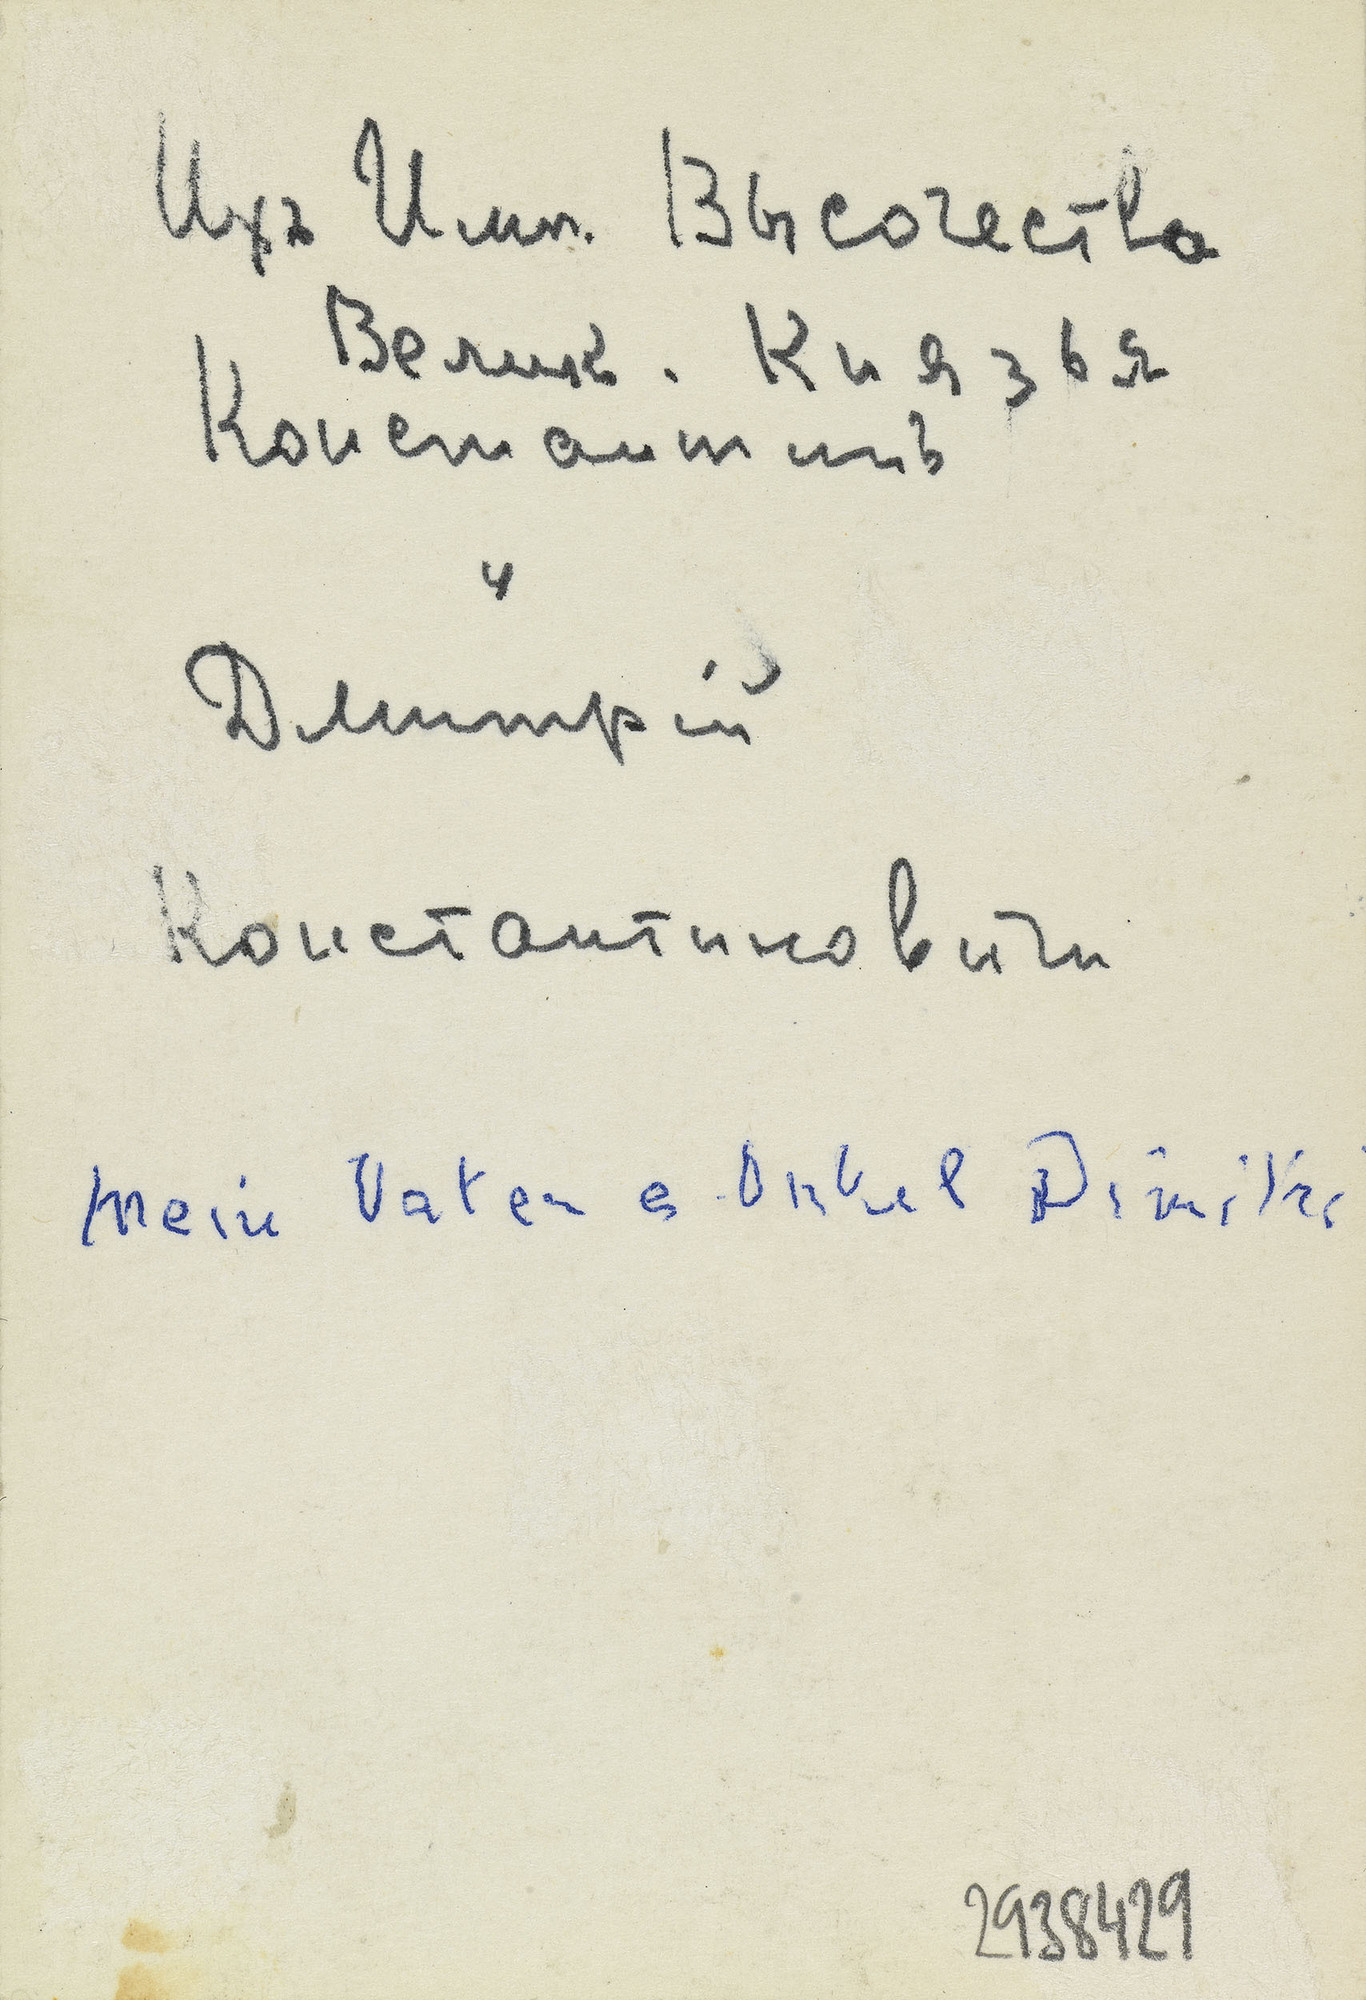 Ихъ Имп. Высочества
Велик. Князья
Константинъ
и
Дмитрій
Константиновичи
mein Vater & Onkel Dimitri
2938429